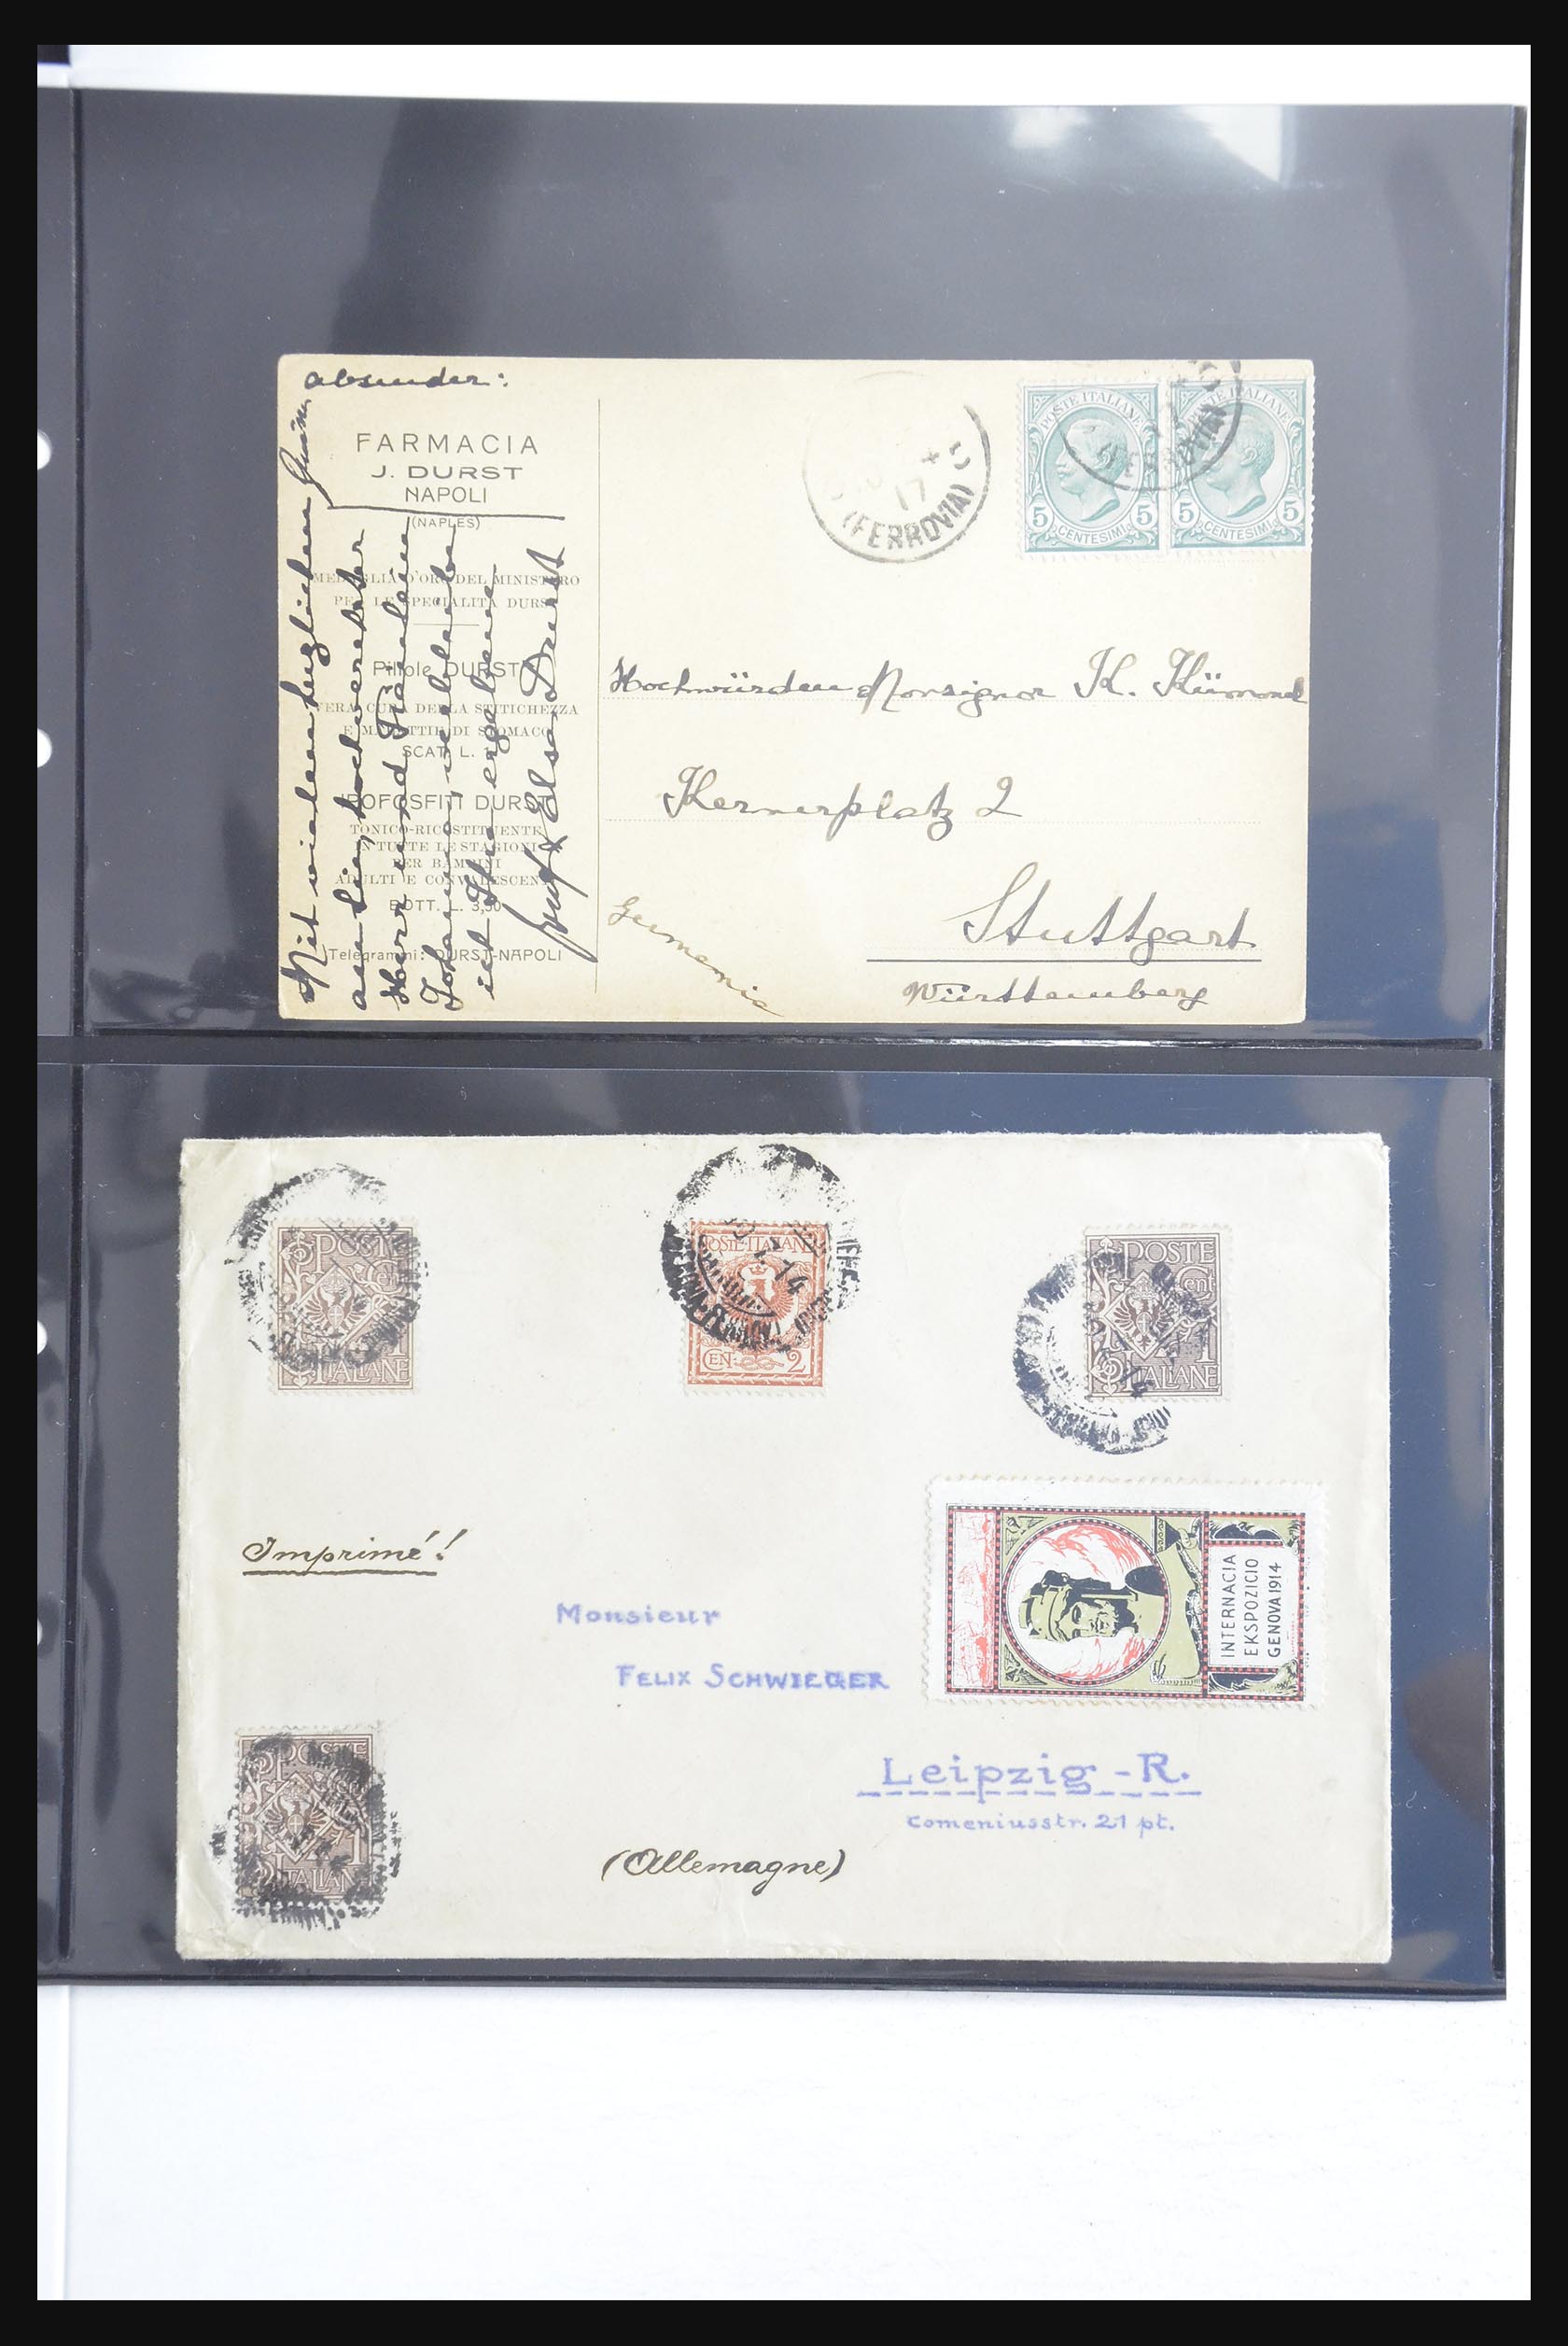 absender:
FARMACIA
J. DURST
NAPOLI
(NAPLES)
MEDAGLIA D'ORO DEL MINISTERO
PER LE SPECIALITA DURST
Pillole DURST
VERA CURA DELLA STITICHEZZA
E MALATTIE DI STOMACO
SCAT. L.
DURST
TONICO-RICOSTITUENTE
IN TUTTE LE STAGIONI
PER BAMBINI
ADULTI E CONVALESCENTI
BOTT. L. 3,50
Telegrammi: DURST-NAPOLI
Mit vielen herzlichen
an Sie, hochverehrter
Herr und Fräulein
Johanna, verbleibe
ich Ihre ergebene
Elsa Durst
(FERROVIA)
17
POSTE ITALIANE
5 CENTESIMI 5
POSTE ITALIANE
5 CENTESIMI 5
Hochwürden Monsignor K.
Kernerplatz 2
Stuttgart
Germania
Württemberg
POSTE
Cent
1
ITALIANE
POSTE ITALIANE
CEN. 2
POSTE
Cent
1
ITALIANE
Imprimé!
INTERNACIA
EKSPOZICIO
GENOVA 1914
Monsieur
FELIX SCHWIEGER
Leipzig-R.
Comeniusstr. 21 pt.
(Allemagne)
POSTE
1
ITALIANE